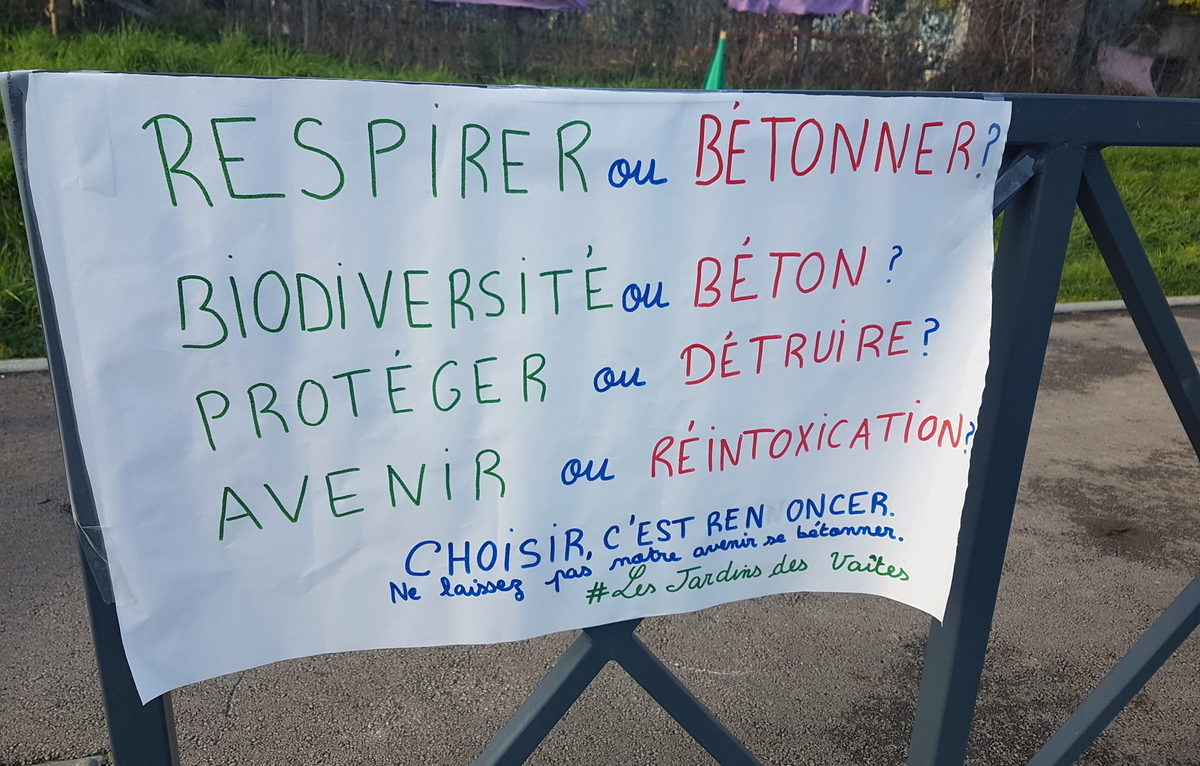 RESPIRER ou BÉTONNER?
BIODIVERSITÉ ou BÉTON ?
PROTÉGER ou DÉTRUIRE?
AVENIR ou RÉINTOXICATION?
CHOISIR, C'EST REN ONCER.
Ne laissez pas notre avenir se bétonner.
#Les Jardins des Vaîtes